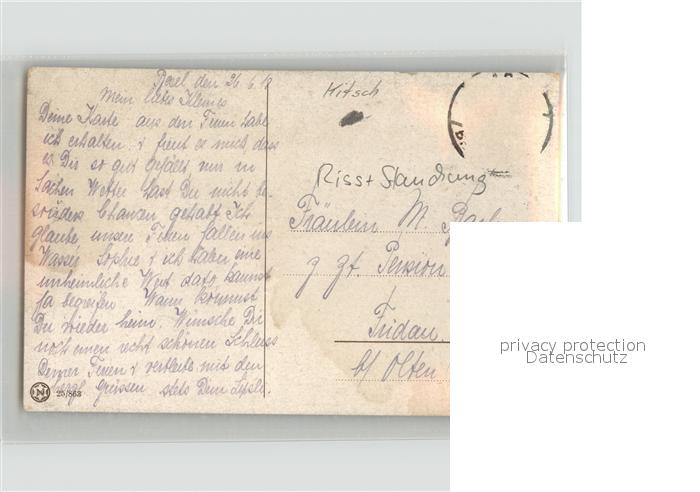 Basel, den 26. 6. 18
Mein liebes Kleines
Deine Karte aus den Ferien habe
ich erhalten & freut es mich, dass
es Dir so gut gefällt, nur in
Sachen Wetter hast Du nicht be-
sonders Chancen gehabt. Ich
glaube unsere Ferien fallen ins
Wasser. Sophie & ich haben eine
unheimliche Wut, das kannst
Ja begreifen. Wann kommst
Du wieder heim. Wünsche Dir
noch einen recht schönen Schluss
Deiner Ferien & verbleibe mit den
herzl. Grüssen stets Dein
N 25/863
Kitsch
Riss+
Fräulein M.
z. Zt. Pension
Fridau.
b/ Olten
privacy protection
Datenschutz